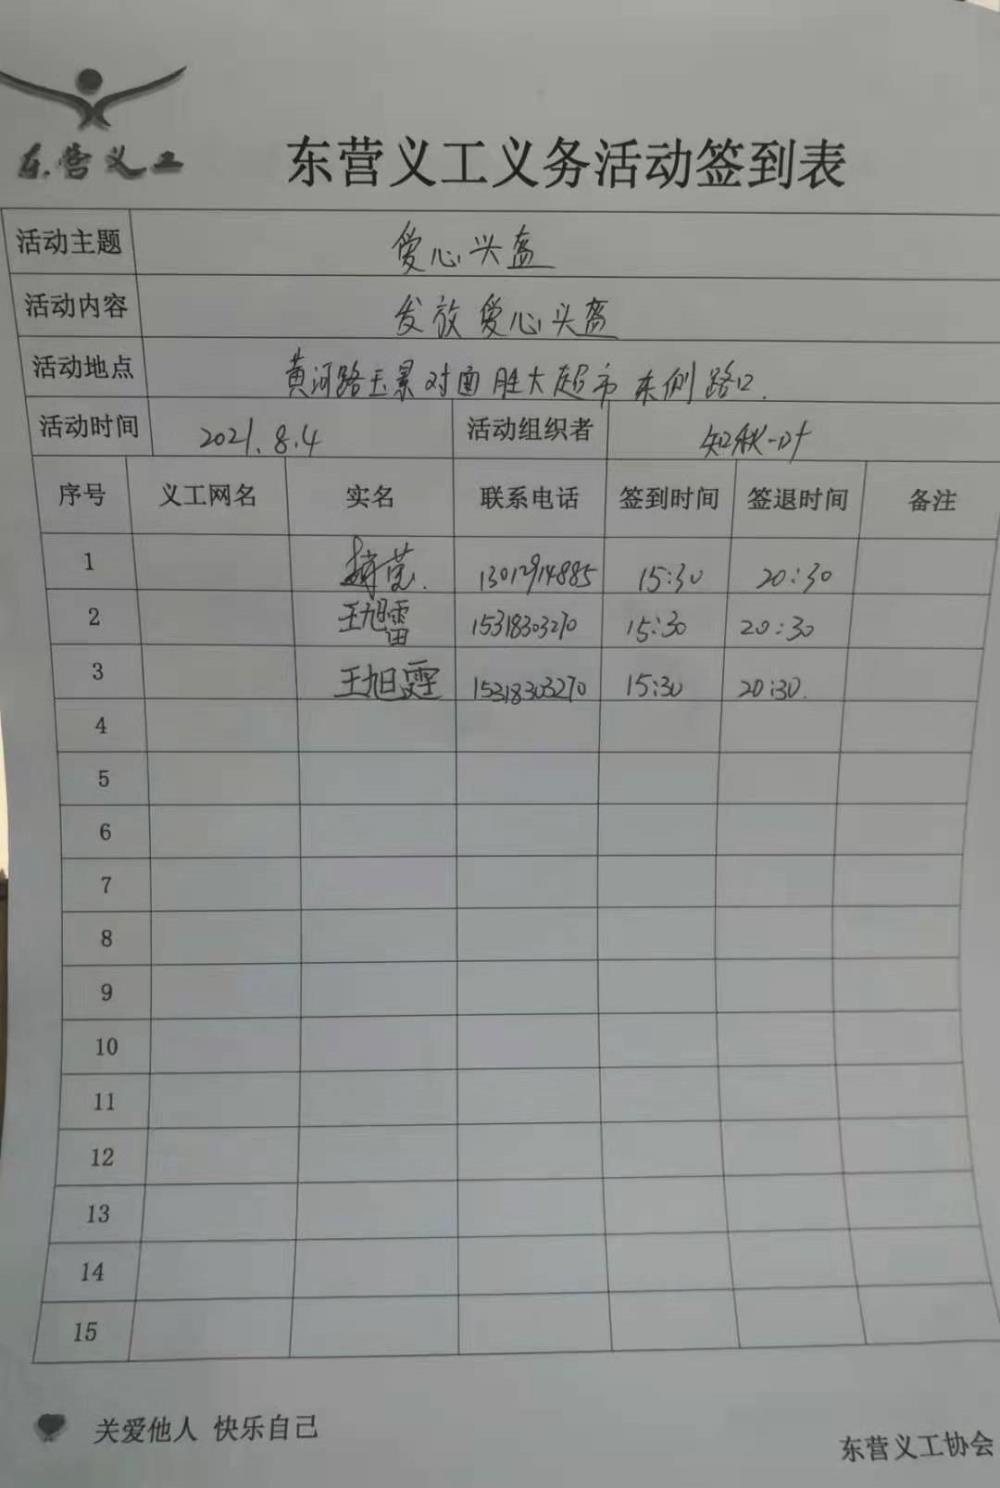 东营义工
东营义工义务活动签到表
活动主题 爱心头盔
活动内容 发放爱心头盔
活动地点 黄河路玉景对面胜大超市东侧路口.
活动时间 2021.8.4 活动组织者 知秋一叶
序号 义工网名 实名 联系电话 签到时间 签退时间 备注
1 13012914885 15:30 20:30
2 王旭雷 15318303270 15:30 20:30
3 王旭霆 15318303270 15:30 20:30.
4
5
6
7
8
9
10
11
12
13
14
15
关爱他人 快乐自己
东营义工协会